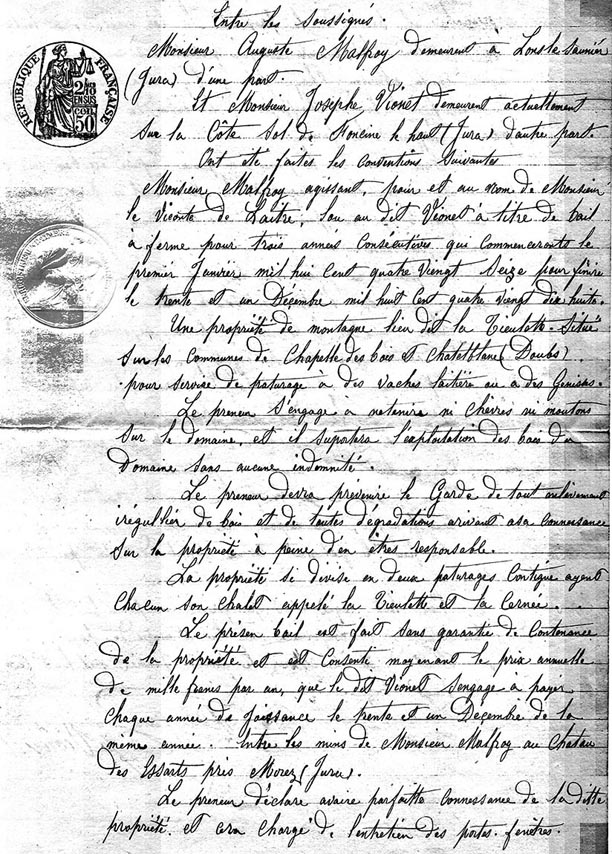 Entre les soussignés.
Monsieur Auguste Malfroy demeurent à Lons le Saunier
(Jura) d'une part.
Et Monsieur Josephe Vionet demeurent actuellement
sur la Côte sol de Foncine le haut (Jura) d'autre part.
Ont eté faites les conventions suivantes
Monsieur Malfroy agissant, pour et au nom de Monsieur
le Viconte de Laitre, lou au dit Vionet à titre de bail
à ferme pour trois annés Consécutives qui commencerents le
premier Janvier mil hui Cent quatre Viengt Seize pour finire
le trente et un Décembre mil huit Cent quatre vingt dix huite.
Une propriété de montagne lieu dit la Tieulette Situé
sur les Communes de Chapelle des bois et Chatelblanc (Doubs)
pour service de paturage à des vaches laitière ou à des Genisses.
Le preneur s'engage à netenire ni chèvres ni moutons
sur le domaine, et il suportera l'exploitation des bois du
Domaine sans aucune indemnité.
Le preneur devra prévenire le Garde de tout enlèvement
irégullier de bois et de toutes dégradations arivant asa Connessance
sur la propriété à peine d'en êtres responsable.
La propriété se divise en deux paturages Contigue ayent
Chacun son chalet appelé la Tieulette et la Cernée.
Le présen bail est fait sans garantie de Contenance
de la propriété et est Consenti moyenant le prix annuelle
de mille francs par an, que le dit Vionet s'engage à payer
Chaque année de joissance le trente et un Décembre de la
même année. Entre les mins de Monsieur Malfroy au Chateau
des Essarts près Morez (Jura).
Le preneur déclare avaire parfaitte connessance de la ditte
propriété. et cera Chargé de l'entretien des portes. fenêtres.
RÉPUBLIQUE FRANÇAISE
2/10
EN SUS
50